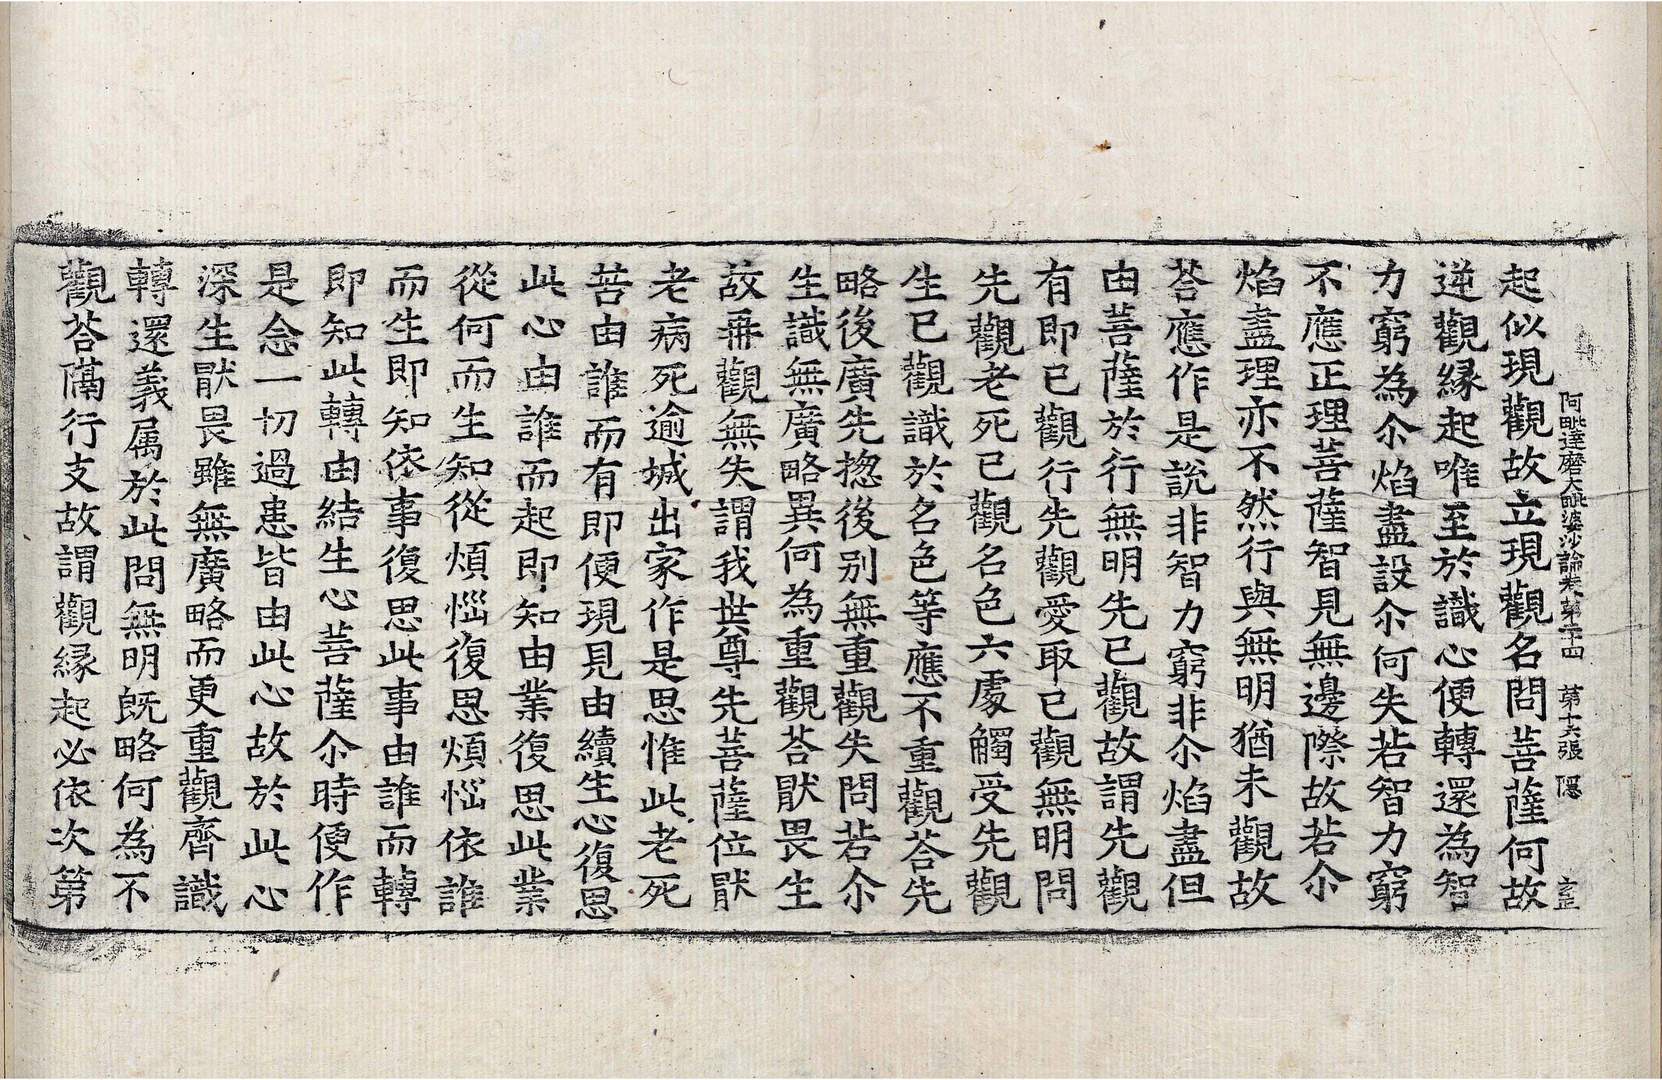 阿毗達磨大毗婆沙論卷第二十四 第十六張 隱
起似現觀故立現觀名問菩薩何故
逆觀縁起唯至於識心便轉還為智
力窮為尒焰盡設尒何失若智力窮
不應正理菩薩智見無邊際故若尒
焰盡理亦不然行與無明猶未觀故
荅應作是說非智力窮非尒焰盡但
由菩薩於行無明先已觀故謂先觀
有即已觀行先觀愛取已觀無明問
先觀老死已觀名色六處觸受先觀
生已觀識於名色等應不重觀荅先
略後廣先揔後别無重觀失問若尒
生識無廣略異何為重觀荅猒畏生
故再觀無失謂我世尊先菩薩位猒
老病死逾城出家作是思惟此老死
苦由誰而有即便現見由續生心復思
此心由誰而起即知由業復思此業
從何而生知從煩惱復思煩惱依誰
而生即知依事復思此事由誰而轉
即知此轉由結生心菩薩尒時便作
是念一切過患皆由此心故於此心
深生猒畏雖無廣略而更重觀齊識
轉還義属於此問無明既略何為不
觀荅隔行支故謂觀縁起必依次第